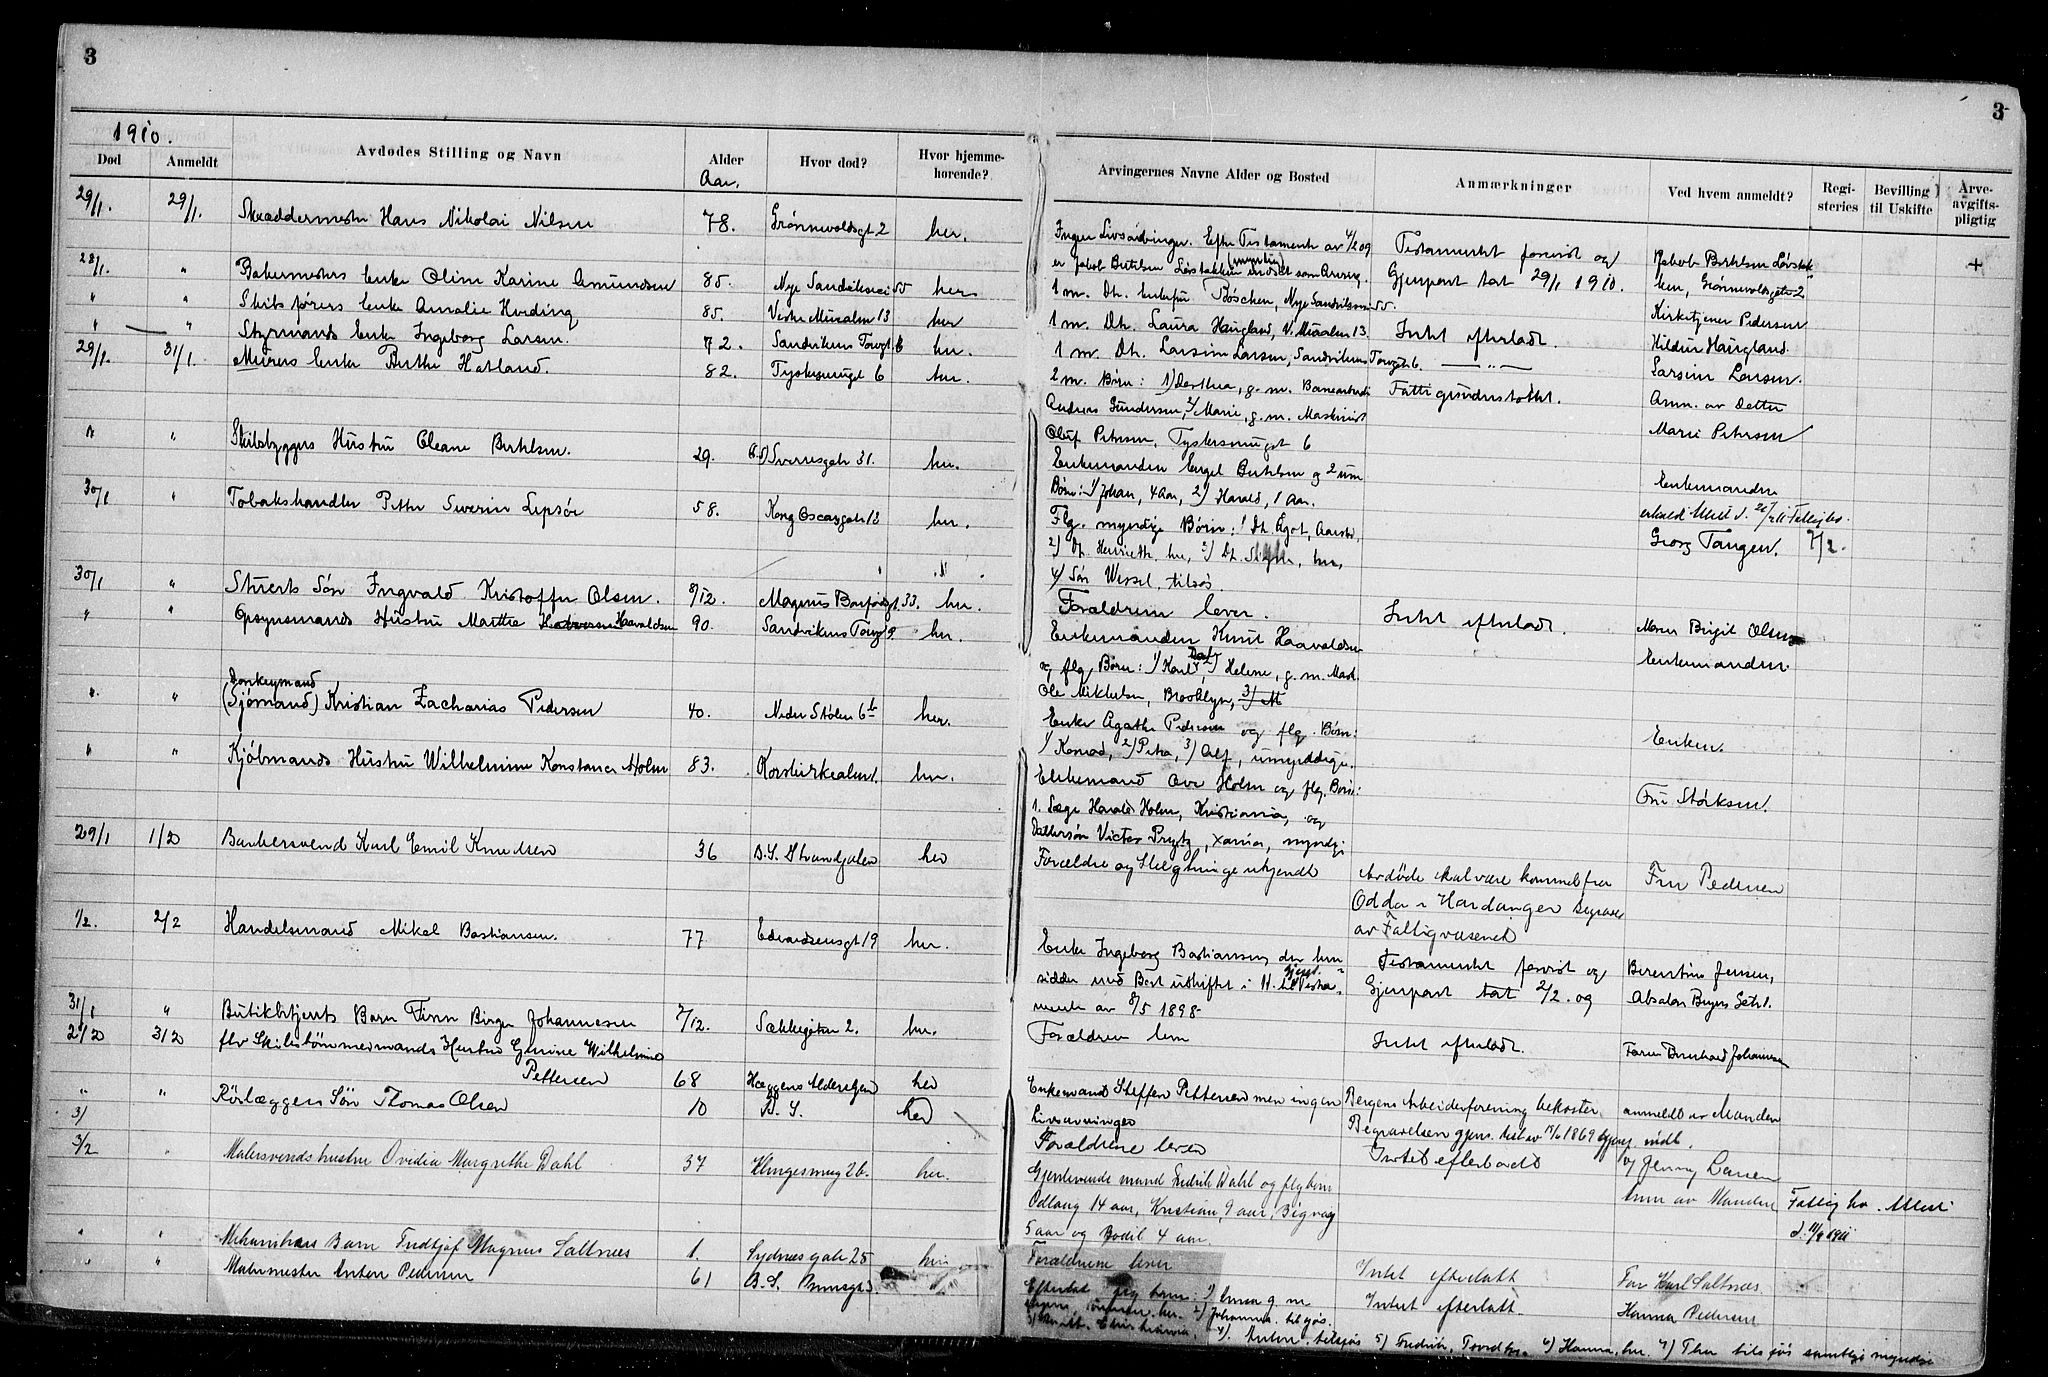 3
3
1910.
Død
Anmeldt
Avdødes Stilling og Navn
Alder
Aar.
Hvor død?
Hvor hjemme-
hørende?
Arvingernes Navne Alder og Bosted
Anmærkninger
Ved hvem anmeldt?
Regi-
steries
Bevilling
til Uskifte
Arve-
avgifts-
pligtig
29/1. 29/1. Skræddermester Hans Nikolai Nilsen 78. Grønnevoldsgt. 2 her.
Ingen Livsarvinger. Efter Testamente av 4/2 09 Testamentet forevist og Jakob Bertelsen Løvstak-
er Jakob Bertelsen Løvstakken (myndig) indsat som Arving. Gjenpart tat 29/1 1910. ken, Grønnevoldsgate 2 +
28/1. " Bakermesters Enke Oline Karine Amundsen 85. Nye Sandviksvei 55 her
1 m. Dt. Enkefru Böschen, Nye Sandviksvei 55. Kirketjener Pedersen
" " Skibsførers Enke Amalie Hviding 85. Vestre Muralm. 13 her
1 m. Dt. Laura Haugland, V. Muralm 13. Intet efterladt. Hildur Haugland.
" " Styrmands Enke Ingeborg Larsen. 72. Sandvikens Torvgt 6 her.
1 m. Dt. Larsine Larsen, Sandvikens Torvgt 6. — " — Larsine Larsen.
29/1. 31/1. Murers Enke Berthe Hatland. 82. Tyskesmuget 6 her.
2 m. Børn: 1) Dorthea, g. m. Banearbeider Fattigunderstøttet. Anm. av Datter
Andreas Gundersen, 2) Marie, g. m. Maskinist Marie Petersen
Oluf Petersen, Tyskesmuget 6
" " Skibsbyggers Hustru Oleane Bertelsen. 29. Sverresgate 31. her.
Enkemanden Engel Bertelsen og 2 um. Enkemanden
Børn: 1) Johan, 4 Aar, 2) Harald, 1 Aar.
30/1 " Tobakshandler Peter Severin Lepsøe 58. Kong Oscarsgate 13 her.
Flg. myndige Børn: 1 Dt. Agot, Georg Tangen. 7/2.
2) Dt. Henriette her, 3) Dt. her,
4) Søn Wessel, tilsjøs.
30/1 " Stuerts Søn Ingvald Kristoffer Olsen. 8/12. Magnus Barfodsgt. 33. her.
Forældrene lever. Intet efterladt. Moren Birgit Olsen
" " Opsynsmands Hustru Marthe Haavaldsen 90. Sandvikens Torvgt 9. her.
Enkemanden Knut Haavaldsen Enkemanden.
og flg Børn: 1) Karl 2) Helene, g. m. Mask.
Ole Mikkelsen, Brooklyn, 3)
" " Donkeymand
(Sjømand) Kristian Zacharias Pedersen 40. Nedre Stølen 6b her.
Enke Agathe Pedersen og flg. Børn: Enken.
1) Konrad, 2) Petra, 3) Alf, umyndige.
" " Kjøbmands Hustru Wilhelmine Konstance Holm 83. Korskirkealm 1. her.
Enkemand Ove Holm og flg. Børn: Fru Størksen.
1. Læge Harald Holm, Kristiania, og
Dattersøn Victor Prytz, Xania, myndige
29/1 1/2 Karl Emil Knudsen 36 B. S. Strandgaten her
Forældre og Slegtninge ukjendt Avdøde skal være kommet fra Fru Pedersen
Odda i Hardanger begraves
av Fattigvæsenet
1/2. 2/2 Handelsmand Mikal Bastiansen. 77 Edvardsensgt 19 her.
Enke Ingeborg Bastiansen, der hen- Testamentet forevist og Berentine Jensen,
sidder med Boet uskiftet i H. t. gjens. Testa- Gjenpart tat 2/2. og Absalon Beyers Gate 1.
mente av 8/5 1898.
31/1 " Butikbetjents Barn Finn Birger Johannesen 7/12. Sækkegaten 2. her.
Forældrene lever Intet efterladt. Faren Bernhard Johannesen
2/2 3/2 fhv Skibstømmermands Hustru Genine Wilhelmine
Pettersen 68 Hæggens Aldershjem her
Enkemand Steffen Pettersen men ingen Bergens Arbeiderforening bekoster anmeldt av Manden
Livsarvinger Begravelsen gjens. test av 15/6 1869
" " Rørlæggers Søn Thomas Olsen 10 B. S. her
Forældrene lever Intet efterladt v/ Jenny Larsen
3/2 " Malersvends hustru Ovidia Margrethe Dahl 37 Klingesmug 2b. her.
Gjenlevende mand Fredrik Dahl og flg børn Anm av Manden Fattig bo. Attest
Odlaug 14 aar, Kristian, 9 aar, Sigvag
5 aar og Bodil 4 aar.
" " Mekanikers Barn Fredtjof Magnus Saltnæs 1. Sydnesgate 25 her
Forældrene lever Intet efterlatt Far Karl Saltnæs
" " Malermester Anton Pedersen 61 B. S. her
Efterlat flg børn: 1) Anna g. m. Intet efterlatt Hanna Pedersen
her. 2) Johannes. tilsjøs.
3) Christiania. 4) Anton, tilsjøs 5) Fredrik, 6) Hanna, her. 7) Thor tilsjøs samtlige myndige